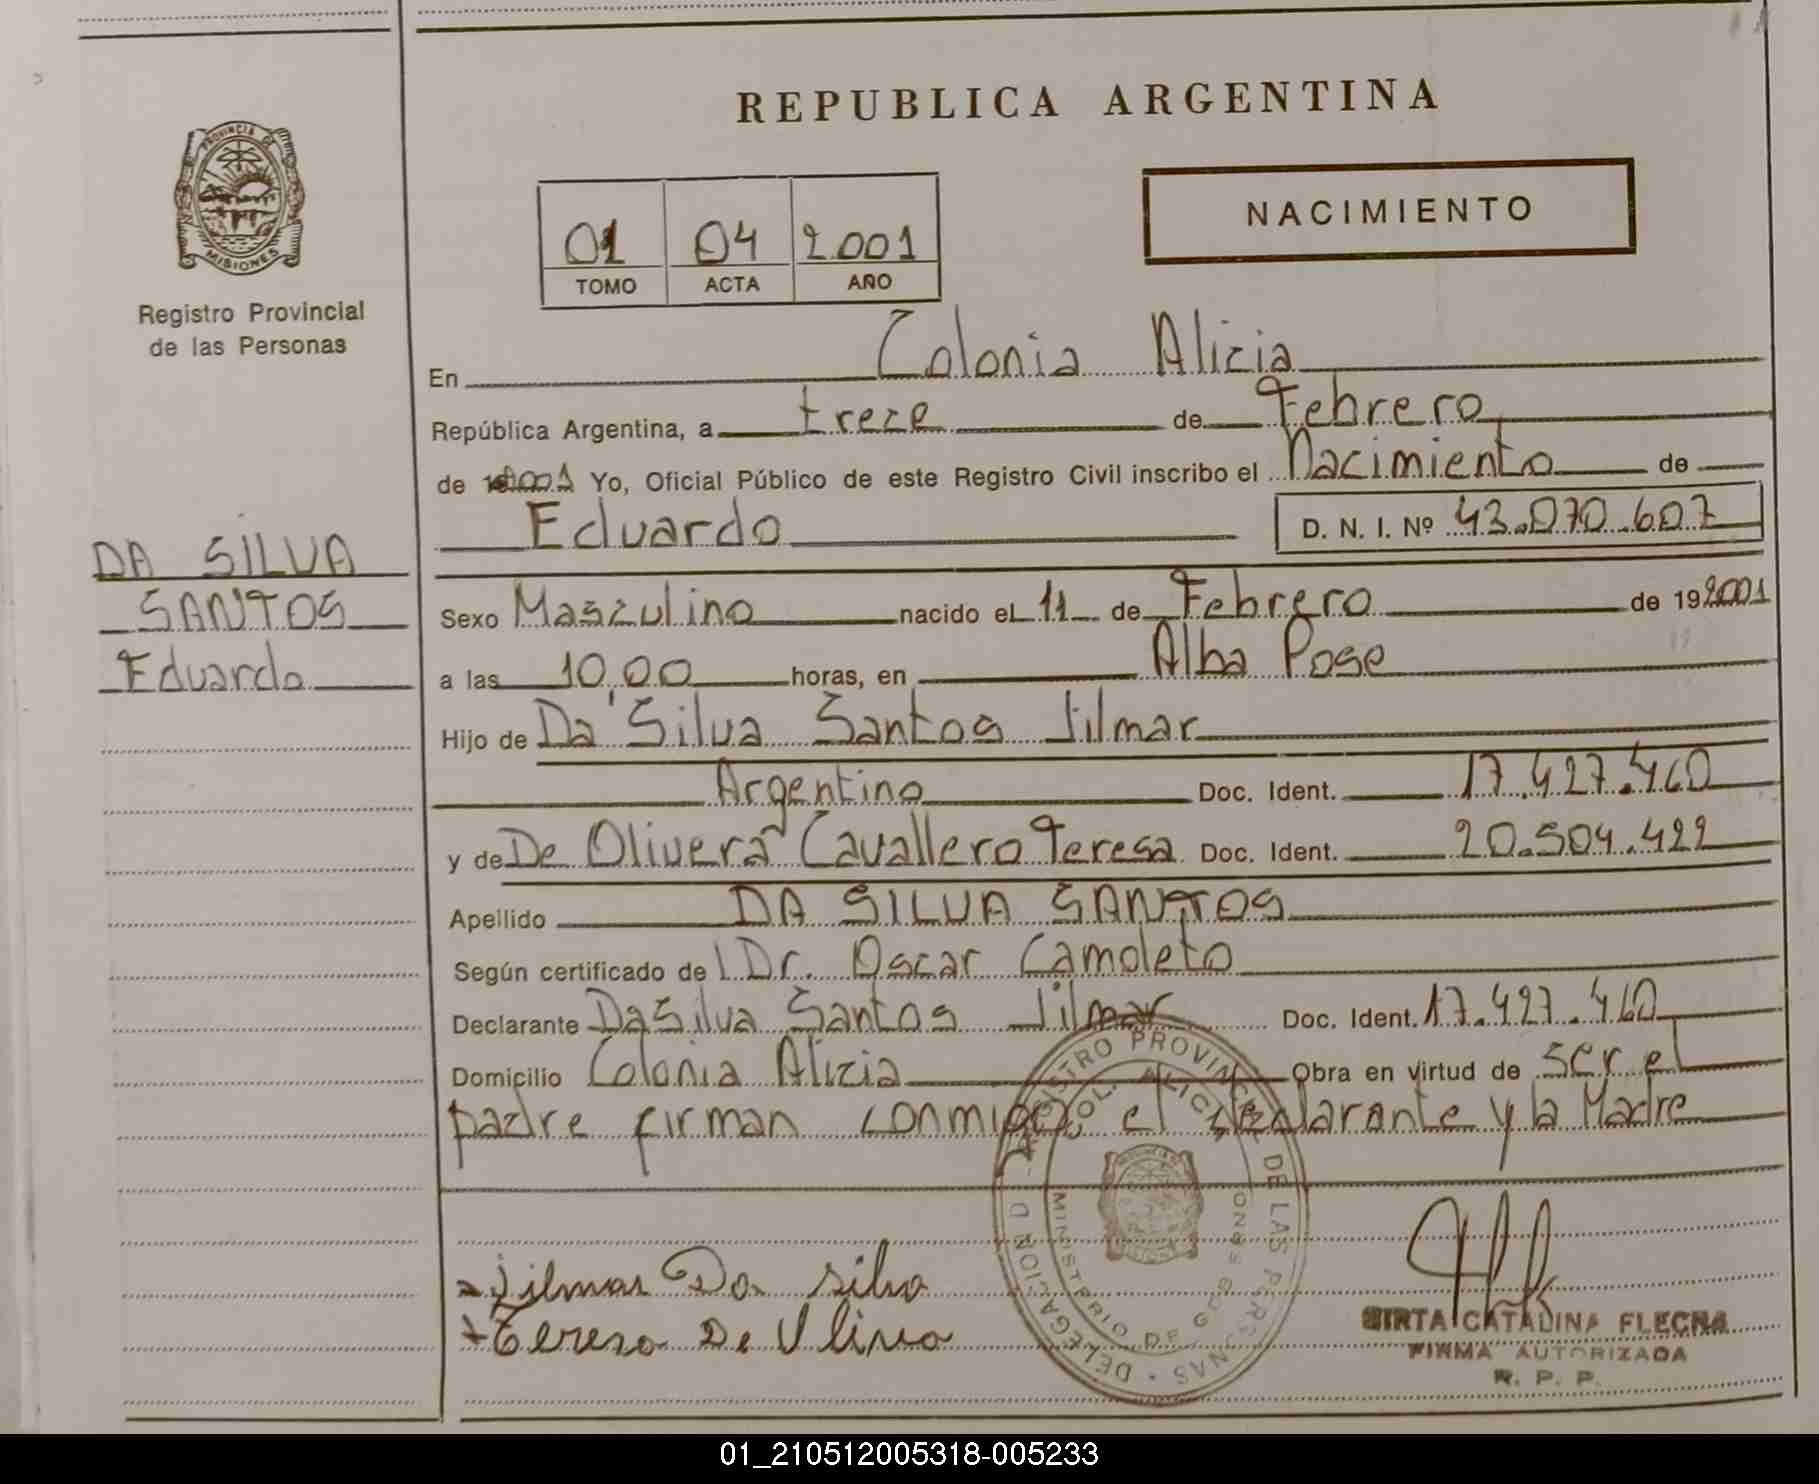 REPUBLICA ARGENTINA
PROVINCIA DE
MISIONES
Registro Provincial
de las Personas
NACIMIENTO
01 04 2001
TOMO ACTA AÑO
En Colonia Alicia
República Argentina, a trece de Febrero
de 2001 Yo, Oficial Público de este Registro Civil inscribo el Nacimiento de
Eduardo D. N. I. Nº 43.070.607
DA SILVA
SANTOS
Eduardo
Sexo Masculino nacido el 11 de Febrero de 19 2001
a las 10,00 horas, en Alba Pose
Hijo de Da Silva Santos Jilmar
Argentino Doc. Ident. 17.427.460
y de De Olivera Cavallero Teresa Doc. Ident. 20.504.422
Apellido DA SILVA SANTOS
Según certificado de Dr. Oscar Camoleto
Declarante Da Silva Santos Jilmar Doc. Ident. 17.427.460
Domicilio Colonia Alicia Obra en virtud de ser el
padre firman conmigo el declarante y la Madre
REGISTRO PROVINCIAL DE LAS PERSONAS · DELEGACION
COL. ALICIA
MINISTERIO DE GOBIERNO
Jilmar Da silva
Teresa De Olivera
MIRTA CATALINA FLECHA
FIRMA AUTORIZADA
R. P. P.
01_210512005318-005233